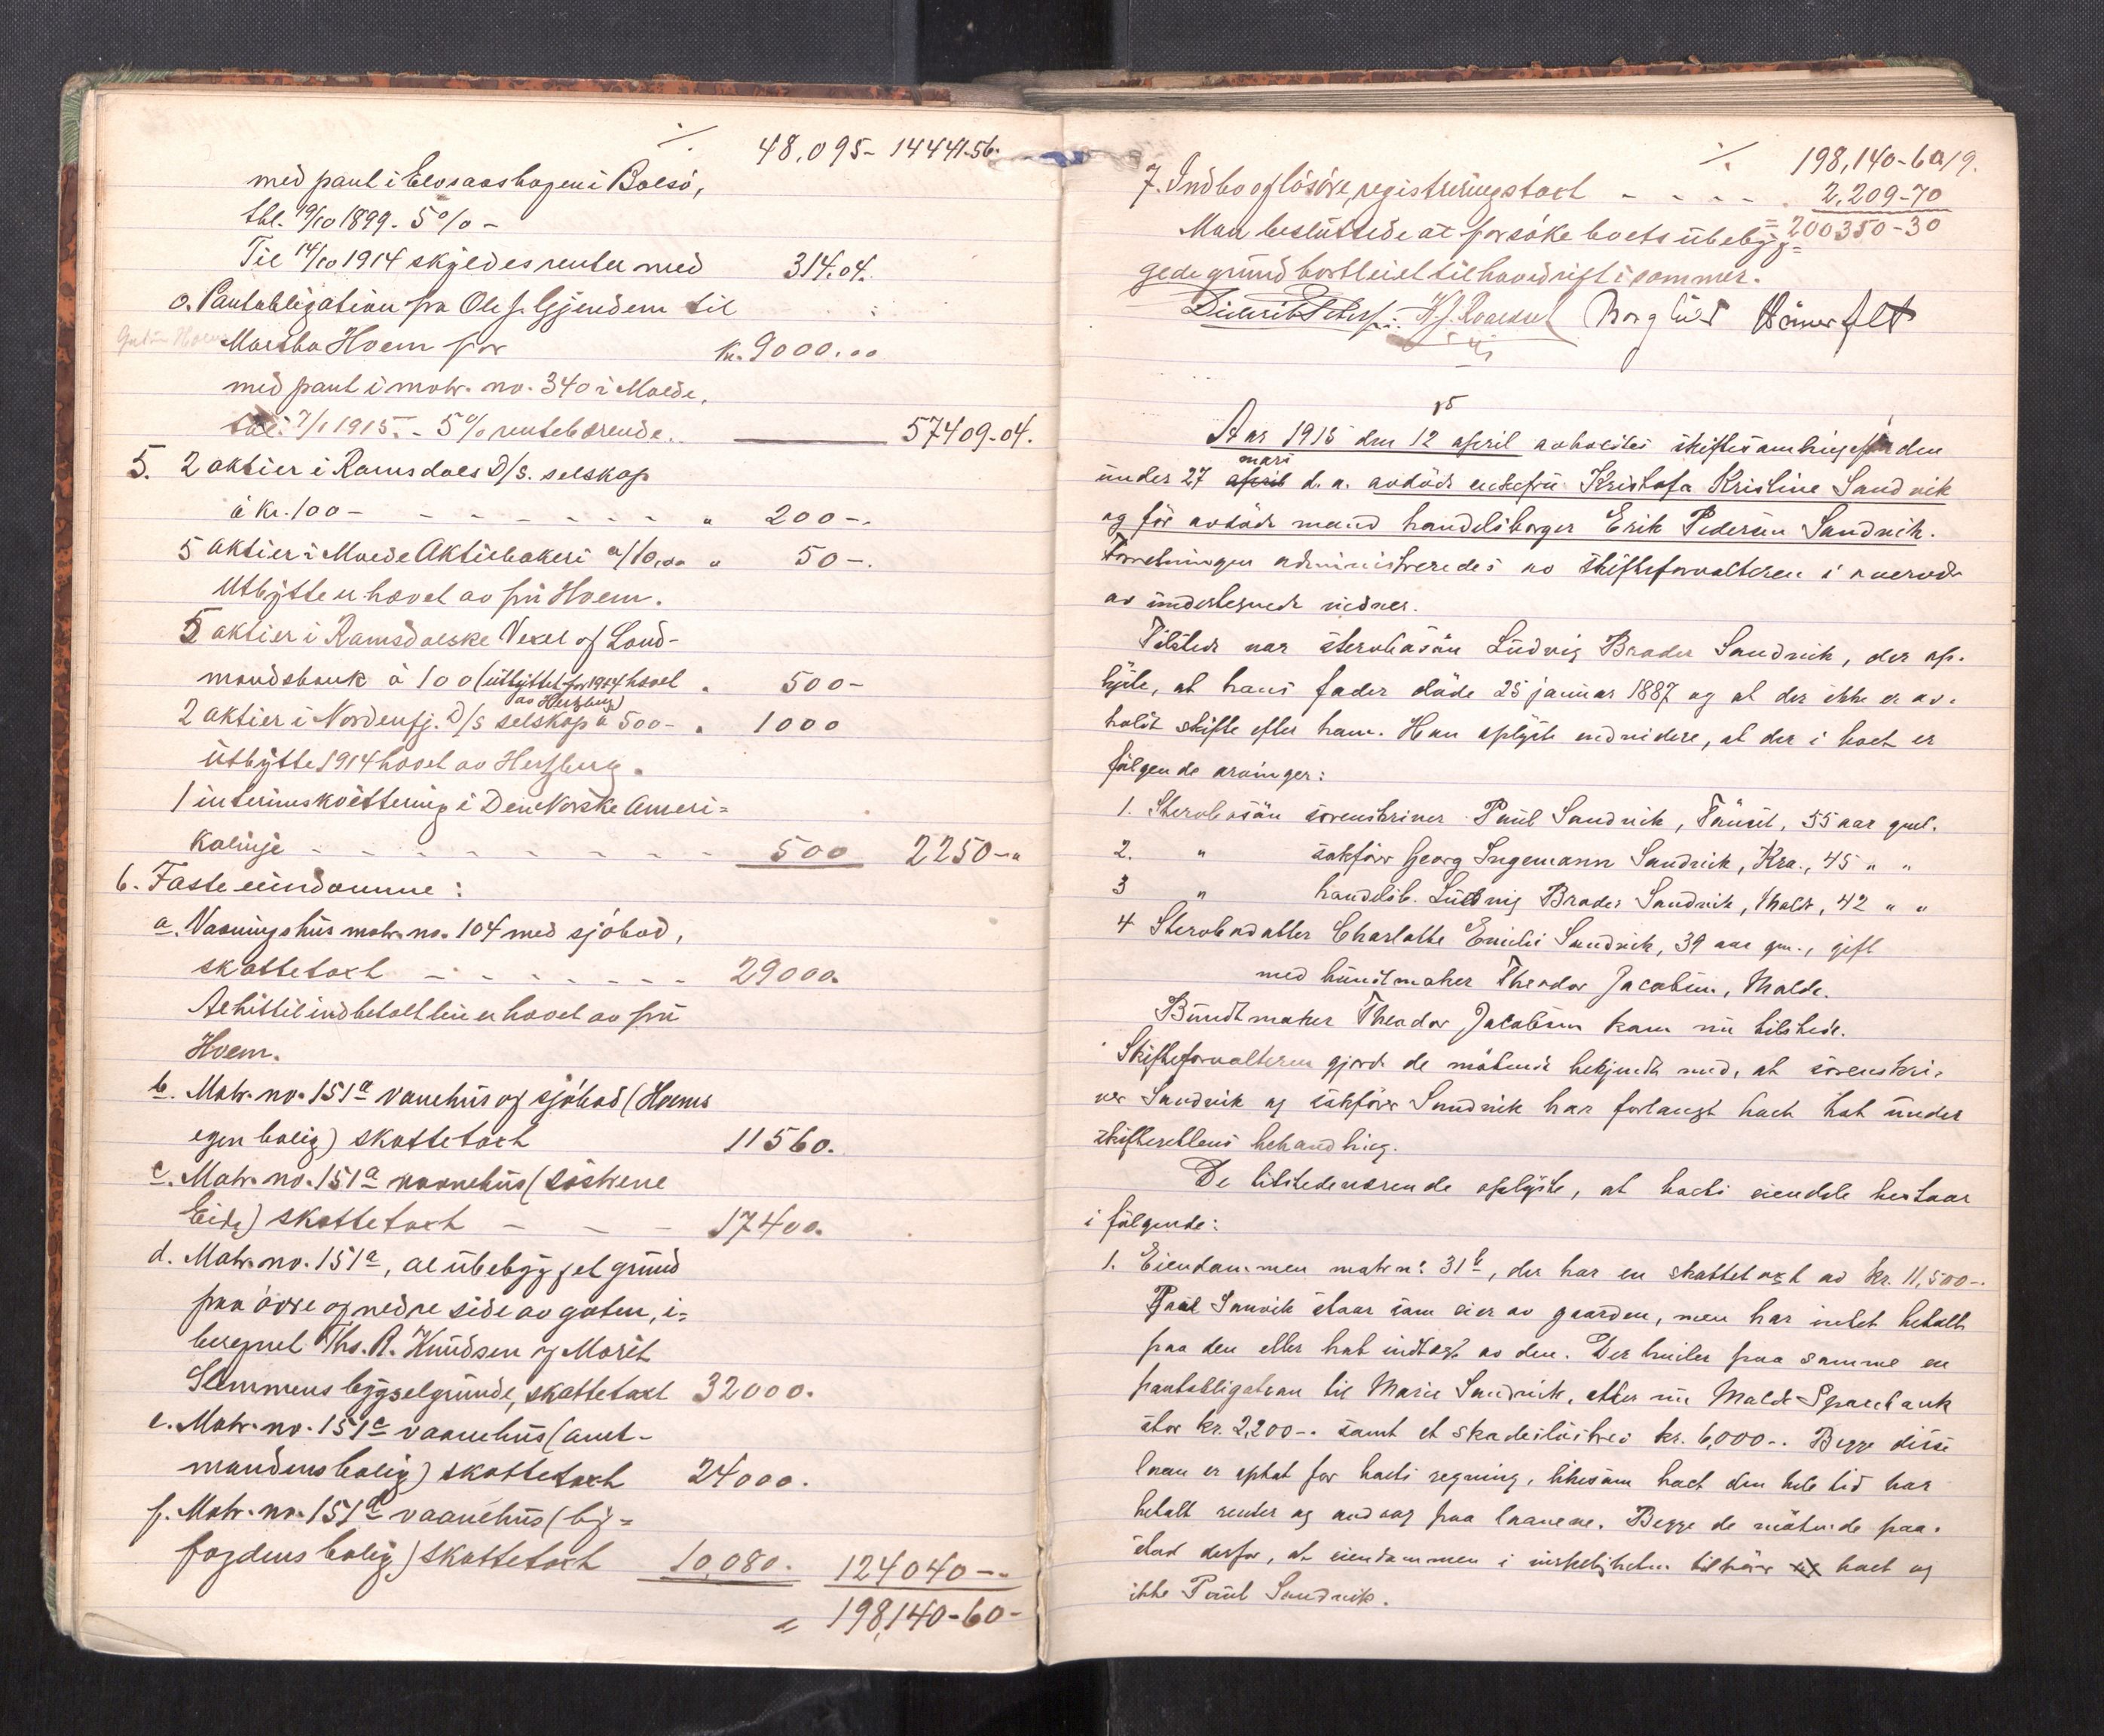 ./. 48,095- 14441-56.
med pant i Elvsaashagen i Bolsö,
tbl. 19/10 1899. 5% -
Til 14/10 1914 skyldes renter med 314.04.
o. Pantobligation fra Ole J. Gjendem til
Martha Hoem for Kr. 9000.00
med pant i matr. no. 340 i Molde,
tbl. 7/1 1915. - 5% rentebærende.. 57409-04.
5. 2 aktier i Ramsdals D/S. selskap
à Kr. 100 - - - - - - - - " 200-.
5 aktier i Molde Aktiebakeri a/10,00 " 50-.
Utbytte er hævet av fru Hoem.
5 aktier i Ramsdalske Vexel og Land-
mandsbank à 100 (utbyttet for 1914 hævet . 500-
av Hertzberg)
2 aktier i Nordenfj. D/S selskap à 500- . 1000
Utbytte 1914 hævet av Hertzberg.
1 interimskvittering i Den Norske Ameri=
kalinje - - - - - - - - - 500 2250-"
6. Faste eiendomme:
a. Vaaningshus matr. no. 104 med sjöbod,
skattetaxt - - - - - - - - 29000.
Al hittil indbetalt leie er hævet av fru
Hoem.
b. Matr. no. 151a vaanehus og sjöbod (Hoems
egen bolig) skattetaxt 11560.
c. Matr. no. 151a vaanehus (söstrene
Eide) skattetaxt - - - 17400.
d. Matr. no. 151a, al ubebygget grund
paa övre og nedre side av gaten, i=
beregnet Ths. R. Knudsen og Marit
Slemmens bygselgrunde, skattetaxt 32000.
e. Matr. no. 151c vaanehus (amt-
mandens bolig) skattetaxt 24000.
f. Matr. no. 151d vaanehus (by=
fogdens bolig) skattetaxt 10,080. 124040--
= 198,140-60-
./. 198,140-60 19.
7. Indbo og lösöre, registreringstaxt - - - - . 2,209-70
Man besluttede at forsöke boets ubebyg= = 200350-30
gede grund bortleiet til havedrift i sommer.
15
Aar 1915 den 12 april avholdtes skiftesamling efter den
mars
under 27 april d. a. avdöde enkefru Kristofa Kristine Sandvik
og för avdöde mand handelsborger Erik Pedersen Sandvik.
Forretningen administreredes av skifteforvalteren i overvær
av undertegnede vidner.
Tilstede var stervbosön Ludvig Brodes Sandvik, der op-
lyste, at hans fader döde 25 januar 1887 og at der ikke er av-
holdt skifte efter ham. Han oplyste endvidere, at der i boet er
fölgende arvinger:
1. Stervbosön sorenskriver Paul Sandvik, Tynset, 55 aar gml.
2. " sakförer Georg Ingemann Sandvik, Kra., 45 " "
3 " handelsb. Ludvig Brodes Sandvik, Molde, 42 " "
4 Stervbodatter Charlotte Emilie Sandvik, 39 aar gm., gift
med buntmaker Theodor Jacobsen, Molde.
Bundtmaker Theodor Jacobsen kom nu tilstede.
Skifteforvalteren gjorde de mötende bekjendt med, at sorenskri-
ver Sandvik og sakförer Sandvik har forlangt boet tat under
skifterettens behandling.
De tilstedeværende oplyste, at boets eiendele bestaar
i fölgende:
1. Eiendommen matr no: 31b, der har en skattetaxt av kr. 11,500-.
Paul Sanvik staar som eier av gaarden, men har intet betalt
paa den eller hat indtægt av den. Der hviler paa samme en
pantobligation til Marie Sandvik, eller nu Molde Sparebank
stor kr. 2,200-. samt et skadeslösbrev kr. 6,000-. Begge disse
laan er optat for boets regning, likesom boet den hele tid har
betalt renter og avdrag paa laanene. Begge de mötende paa-
stod derfor, at eiendommen i virkeligheten tilhörer boet og
ikke Paul Sandvik.